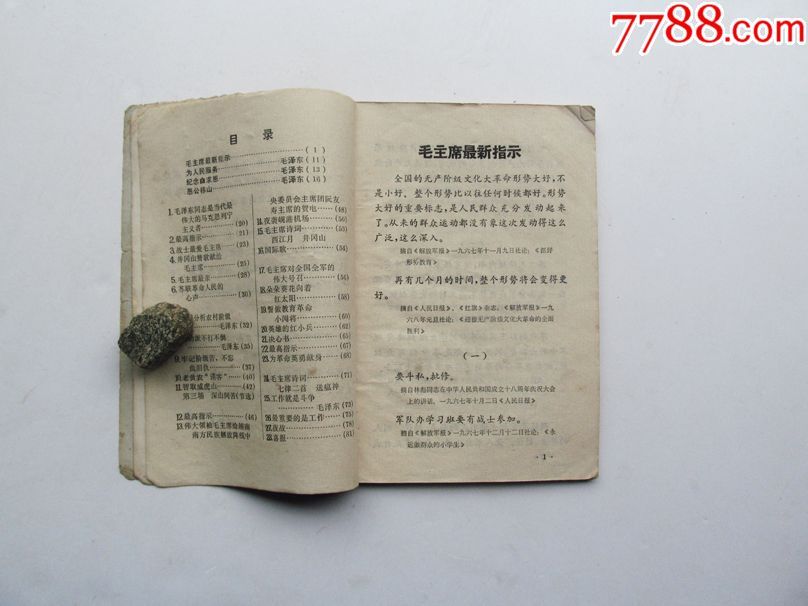 7788.com
目录
毛主席最新指示……(1)
为人民服务……毛泽东(11)
纪念白求恩……毛泽东(13)
愚公移山……毛泽东(16)
1.毛泽东同志是当代最
伟大的马克思列宁
主义者……(20)
2.最高指示……(21)
3.战士最爱毛主席……(23)
4.井冈山赞歌献给
毛主席……(25)
5.毛主席最亲……(28)
6.苏联革命人民的
心声……(30)
分析农村阶级
毛泽东(32)
就不打不倒
毛泽东(35)
9.牢记阶级苦,不忘
血泪仇……(37)
10.老贫农“请客”……(40)
11.智取威虎山……(42)
第三场 深山问苦(节选)
12.最高指示……(46)
13.伟大领袖毛主席给越南
南方民族解放阵线中
央委员会主席团阮友
寿主席的贺电……(48)
14.夜袭岘港机场……(50)
15.毛主席诗词……(54)
西江月 井冈山
16.国际歌……(56)
17.毛主席对全国全军的
伟大号召……(56)
18.朵朵葵花向着
红太阳……(58)
19.誓做教育革命
小闯将……(60)
20.英雄的红小兵……(62)
21.决心书……(65)
22.最高指示……(67)
23.为革命英勇献身……(68)
24.毛主席诗词……(71)
七律二首 送瘟神
25.工作就是斗争
……毛泽东(73)
26.最重要的是工作……(75)
27.夜战……(78)
28.喜报……(81)
毛主席最新指示
全国的无产阶级文化大革命形势大好,不
是小好。整个形势比以往任何时候都好。形势
大好的重要标志,是人民群众充分发动起来
了。从来的群众运动都没有象这次发动得这么
广泛,这么深入。
摘自《解放军报》一九六七年十一月九日社论:《抓好
形势教育》
再有几个月的时间,整个形势将会变得更
好。
摘自《人民日报》、《红旗》杂志、《解放军报》一九
六八年元旦社论:《迎接无产阶级文化大革命的全面
胜利》
(一)
要斗私,批修。
摘自林彪同志在中华人民共和国成立十八周年庆祝大会
上的讲话,一九六七年十月二日《人民日报》
军队办学习班要有战士参加。
摘自《解放军报》一九六七年十二月十二日社论:《永
远做群众的小学生》
·1·